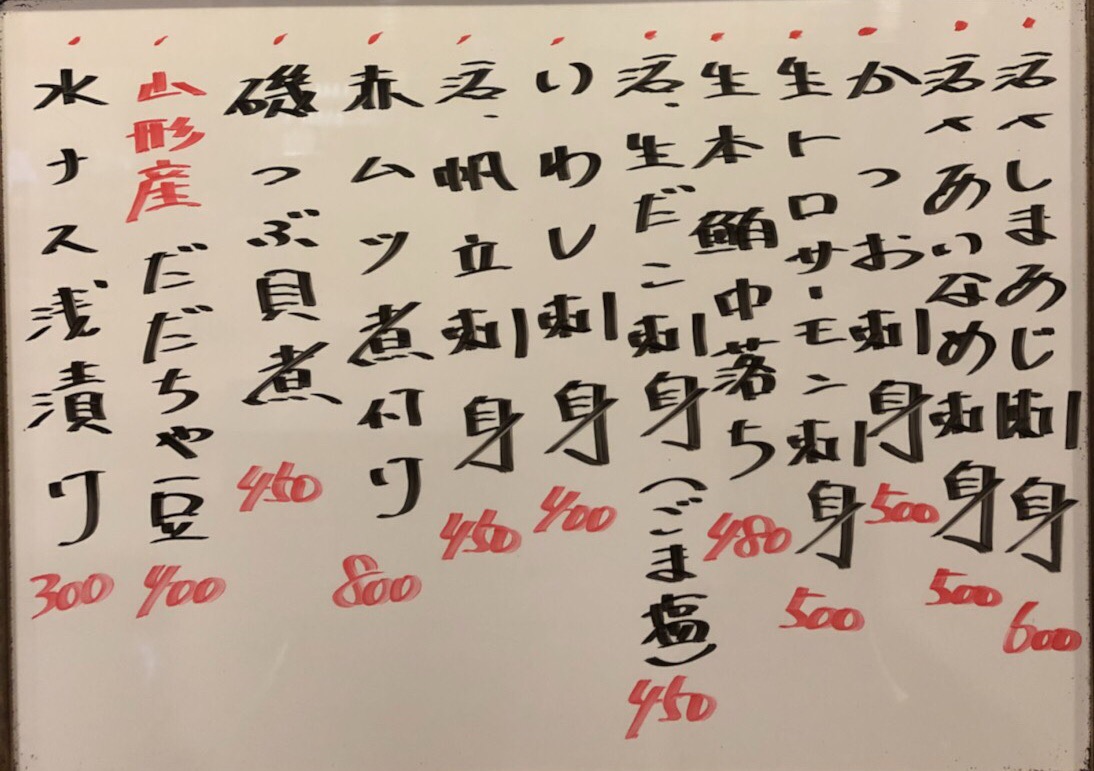 活〆しまあじ刺身 600
活〆あいなめ刺身 500
かつお刺身 500
生トロサーモン刺身 500
生本鮪中落ち 480
活、生だこ刺身(ごま塩) 450
いわし刺身 400
活、帆立刺身 450
赤ムツ煮付け 800
磯つぶ貝煮 450
山形産だだちゃ豆 400
水ナス浅漬け 300